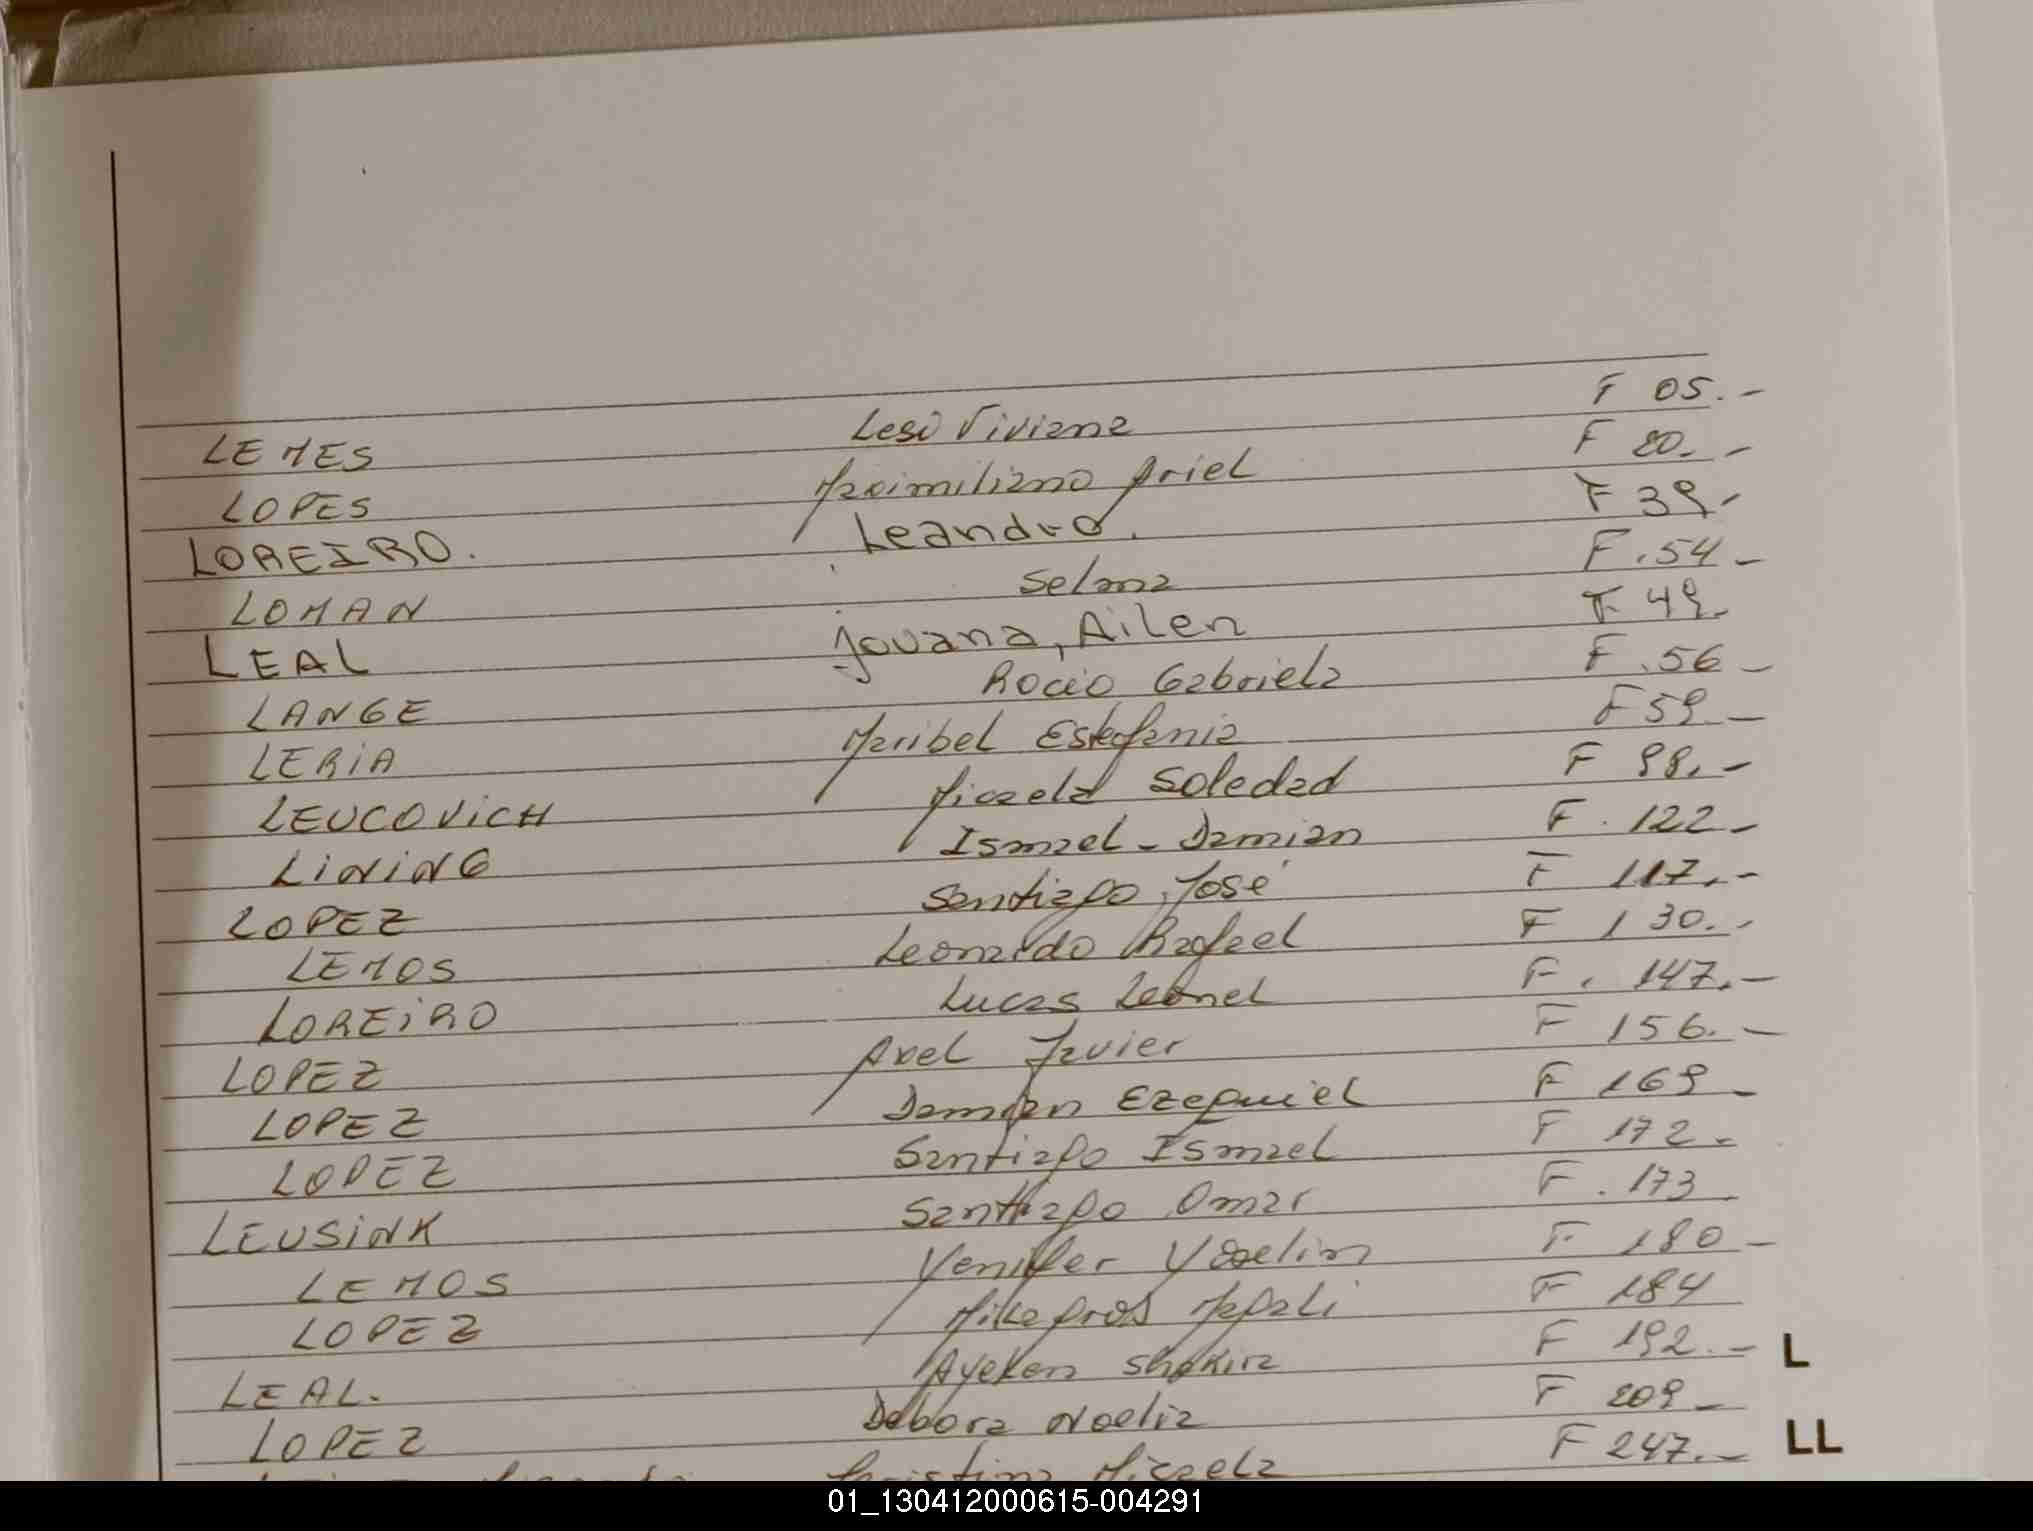 LEMES Viviana F 05.-
LOPES Maximiliano Ariel F 20.-
LOREIRO. Leandro. F 39.-
LOMAN Selma F.54-
LEAL Jovana, Ailen F 49.-
LANGE Rocio Gabriela F.56-
LERIA Maribel Estefania F 59.-
LEUCOVICH Micaela Soledad F 98.-
LINING Ismael-Damian F.122-
LOPEZ Santiago José F 117.-
LEMOS Leonardo Rafael F 130.-
LOREIRO Lucas Leonel F.147.-
LOPEZ Axel Javier F 156.-
LOPEZ Damian Ezequiel F 169-
LOPEZ Santiago Ismael F 172-
LEUSINK Santiago Omar F.173
LEMOS Yenifer F 180-
LOPEZ Milagros Magali F 184
LEAL. Ayelen Shakira F 192.-
L
LOPEZ Debora Noelia F 209-
Micaela F 247.-
LL
01_130412000615-004291